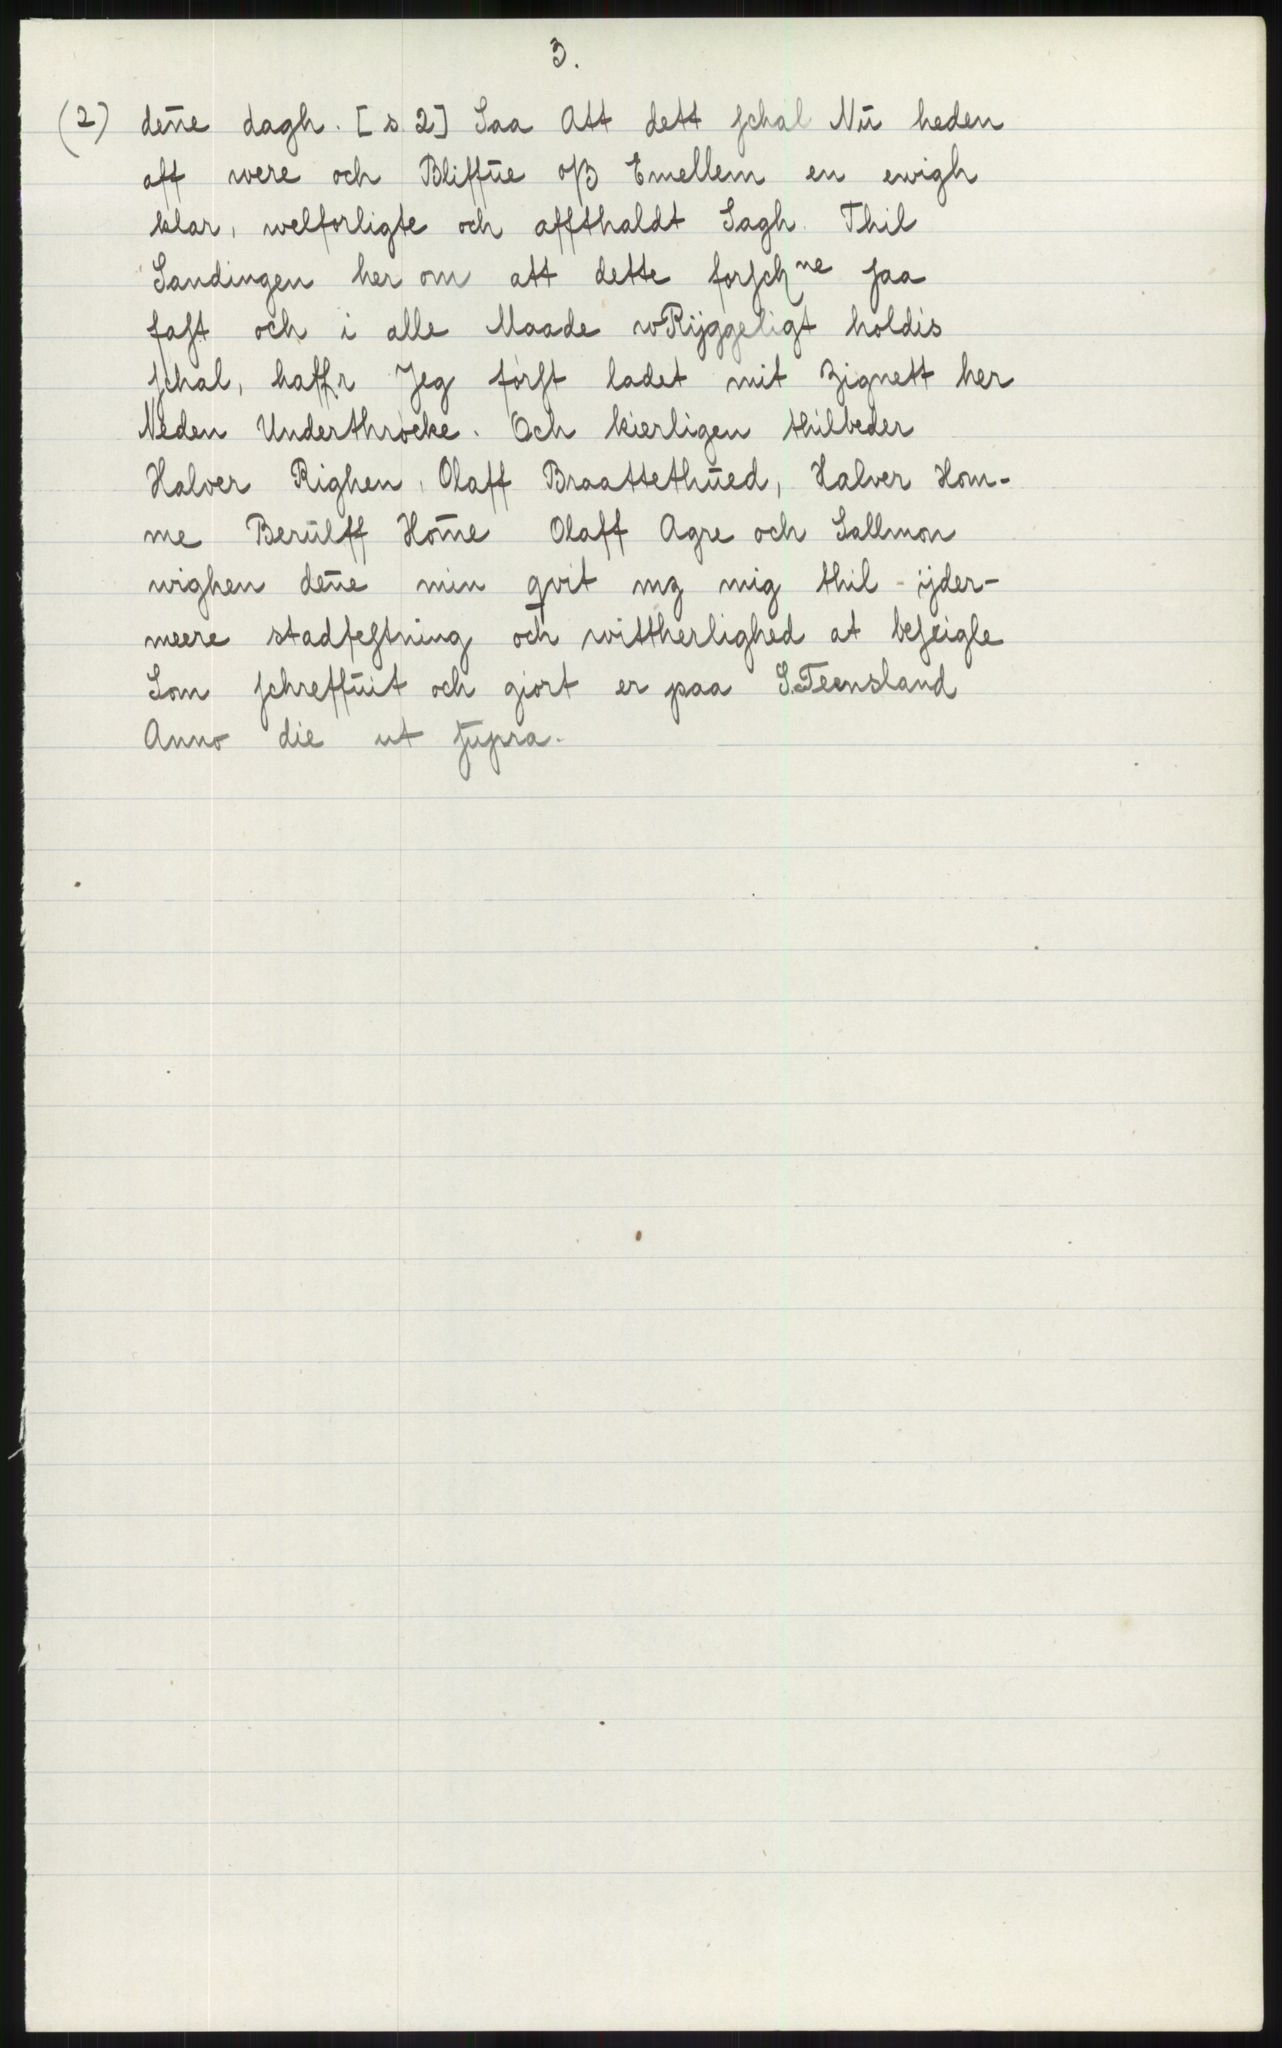 3.
(2) den̄e dagh. [s 2] Saa Att dett ſchal Nū heden
aff were och Bliffūe oſʒ Emellem en ewigh
klar, welforligte och affthaldt Sagh. Thil
Sandingen her om att dette forſchⁿᵉ ſaa
faſt och i alle Maade wRÿggeligt holdis
ſchal, haffr Jeg førſt ladet mit Zignett her
Neden Underthrøcke. Och kierligen thilbeder
Halvor Righen, Olaff Braattethūed, Halvor Hom-
me Berūlff Hom̄e Olaff Agre och Sallmon
wighen den̄e min qvit mʒ mig thil ÿder-
meere stadfeſtning och wittherlighed at beſeigle
Som ſchreffūit och giort er paa S.Teensland
Anno die ut ſūpra.